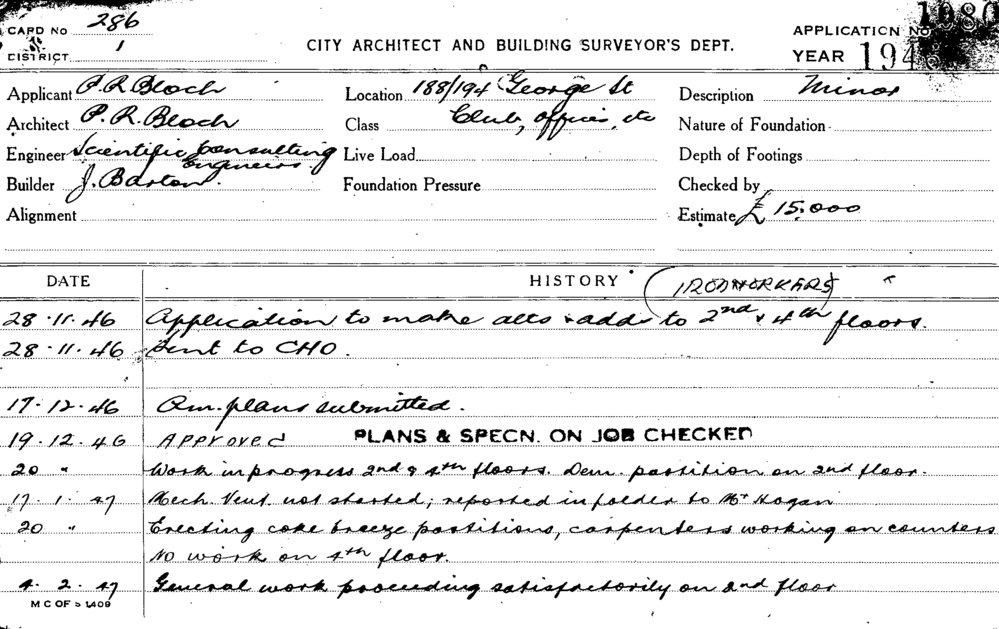 CARD No 286
DISTRICT 1
CITY ARCHITECT AND BUILDING SURVEYOR'S DEPT.
APPLICATION No 1080
YEAR 194
Applicant P. R. Bloch
Location 188/194 George St
Description Minor
Architect P. R. Bloch
Class Club, offices, etc
Nature of Foundation
Engineer Scientific Consulting Engineers
Live Load
Depth of Footings
Builder J. Barton.
Foundation Pressure
Checked by
Alignment
Estimate £ 15,000
DATE
HISTORY
(IRONWORKERS)
28.11.46 Application to make alts & adds to 2nd & 4th floors.
28.11.46 Sent to CHO.
17.12.46 Am. plans submitted.
19.12.46 Approved PLANS & SPECN. ON JOB CHECKED
20 " Work in progress 2nd & 4th floors. Dem. partition on 2nd floor.
17.1.47 Mech. Vent. not started; reported in folder to Mr Hogan
20 " Erecting coke breeze partitions, carpenters working on counters
No work on 4th floor.
4.2.47 General work proceeding satisfactorily on 2nd floor
M C OF S 1409